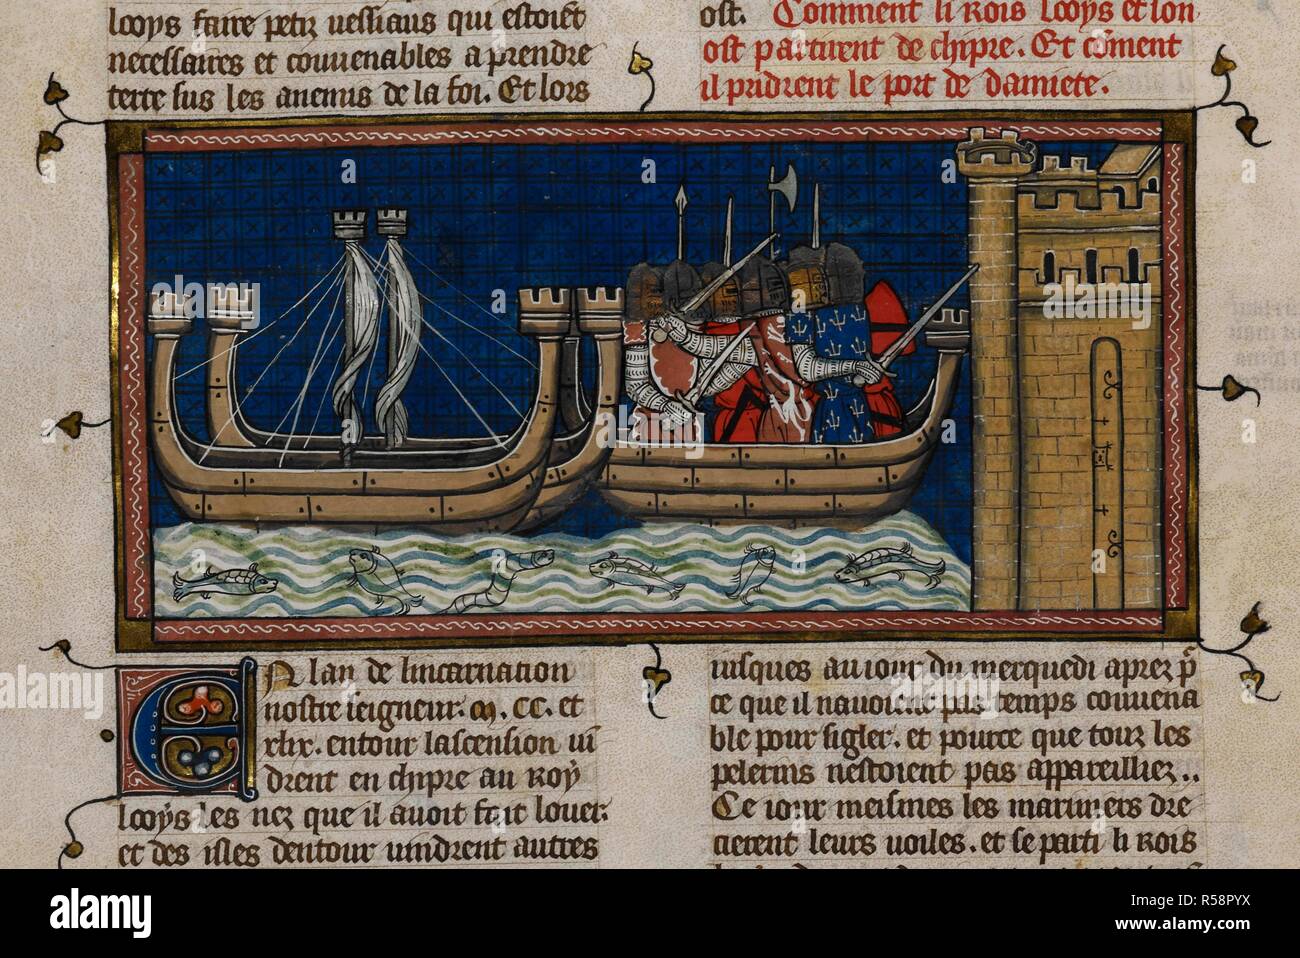 looys faire petiz uessiaus qui estoiēt
necessaires et couuenables a prendre
terre sus les anemis de la foi. Et lors
ost. Comment li rois looys et son
ost partirent de chipre. Et cōment
il pridrent le port de damiete.
EN lan de lincarnation
nostre seigneur. m. cc. et
xlix. entour lascension ui
drent en chipre au roy
looys les nez que il auoit fait louer.
et des isles dentour uindrent autres
iusques au iour du merquedi aprez p̄
ce que il nauoient pas temps conuena
ble pour sigler. et pource que touz les
pelerins nestoient pas appareilliez..
Ce iour meismes les mariniers dre
cierent leurs uoiles. et se parti li rois
a
alamy
alamy stock photo
R58PYX
www.alamy.com